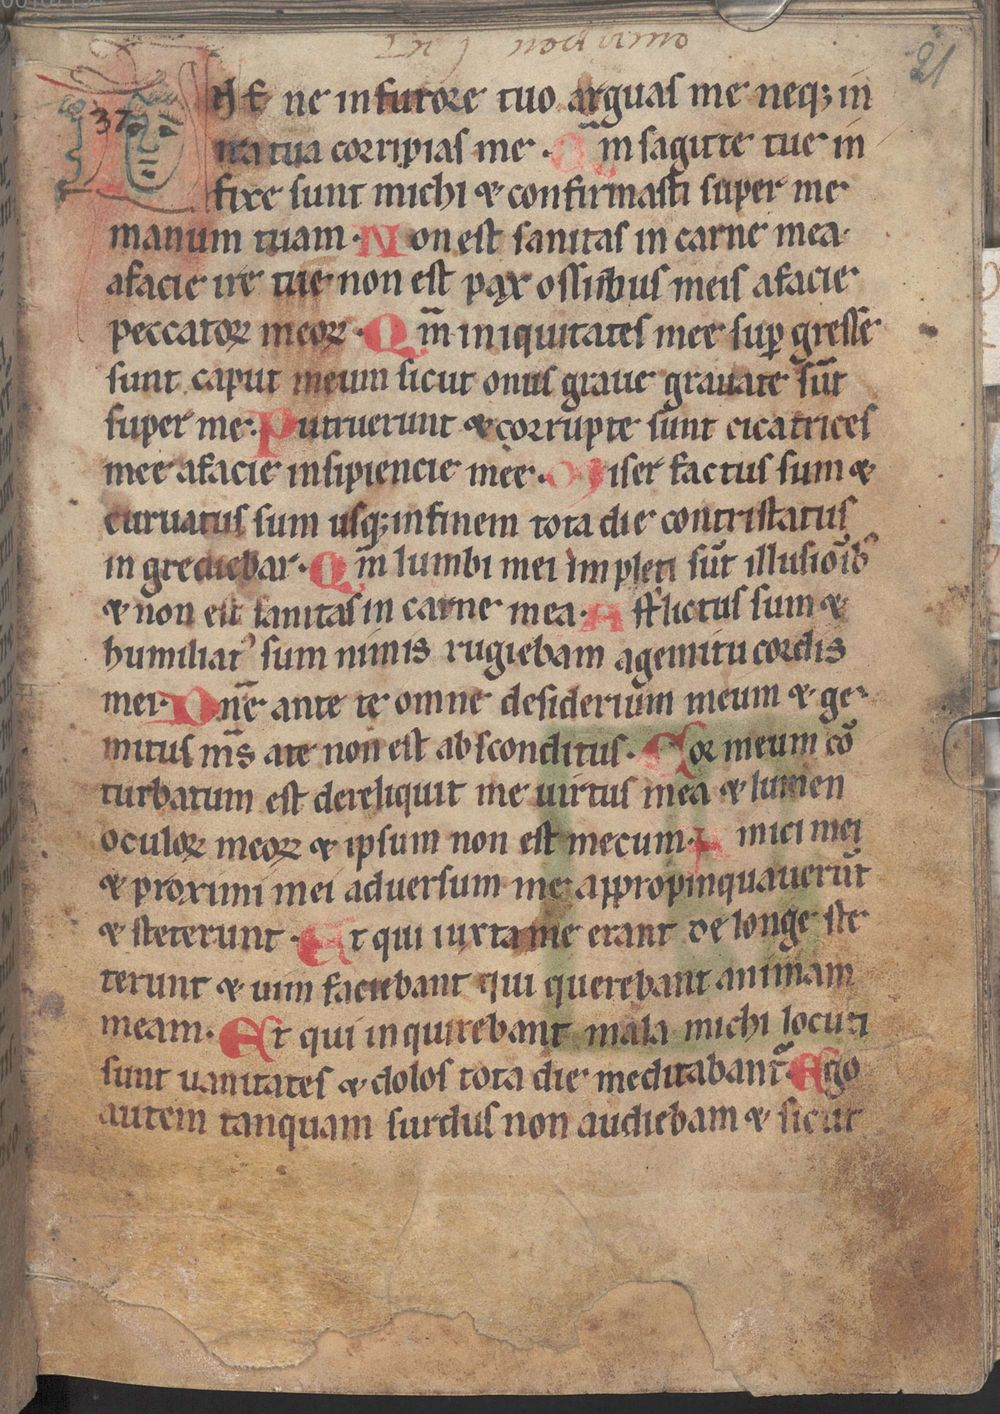 In j nocturno
21
37
Dnē ne in furore tuo arguas me neqꝫ in
ira tua corripias me · Qm̄ sagitte tue in
fixe sunt michi ⁊ confirmasti super me
manum tuam · Non est sanitas in carne mea ·
afacie ire tue non est pax ossibus meis afacie
peccatoꝝ meoꝝ · Qm̄ iniquitates mee suꝑ gresse
sunt caput meum sicut onus graue grauate sūt
super me · Putruerunt ⁊ corrupte sunt cicatrices
mee afacie insipiencie mee · Miser factus sum ⁊
curuatus sum usqꝫ in finem tota die contristatus
in grediebar · Qm̄ lumbi mei impleti sūt illusiōib᷒
⁊ non est sanitas in carne mea · Afflictus sum ⁊
humiliat᷒ sum nimis rugiebam agemitu cordis
mei · Dn̄e ante te omne desiderium meum ⁊ ge-
mitus ms̄ ate non est absconditus · Cor meum cō
turbatum est dereliquit me uirtus mea ⁊ lumen
oculoꝝ meoꝝ ⁊ ipsum non est mecum · Amici mei
⁊ proximi mei aduersum me appropinquauerūt
⁊ steterunt · Et qui iuxta me erant de longe ste
terunt ⁊ uim faciebant qui querebant animam
meam · Et qui inquirebant mala michi locuti
sunt uanitates ⁊ dolos tota die meditabant᷒ · Ego
autem tanquam surdus non audiebam ⁊ sicut